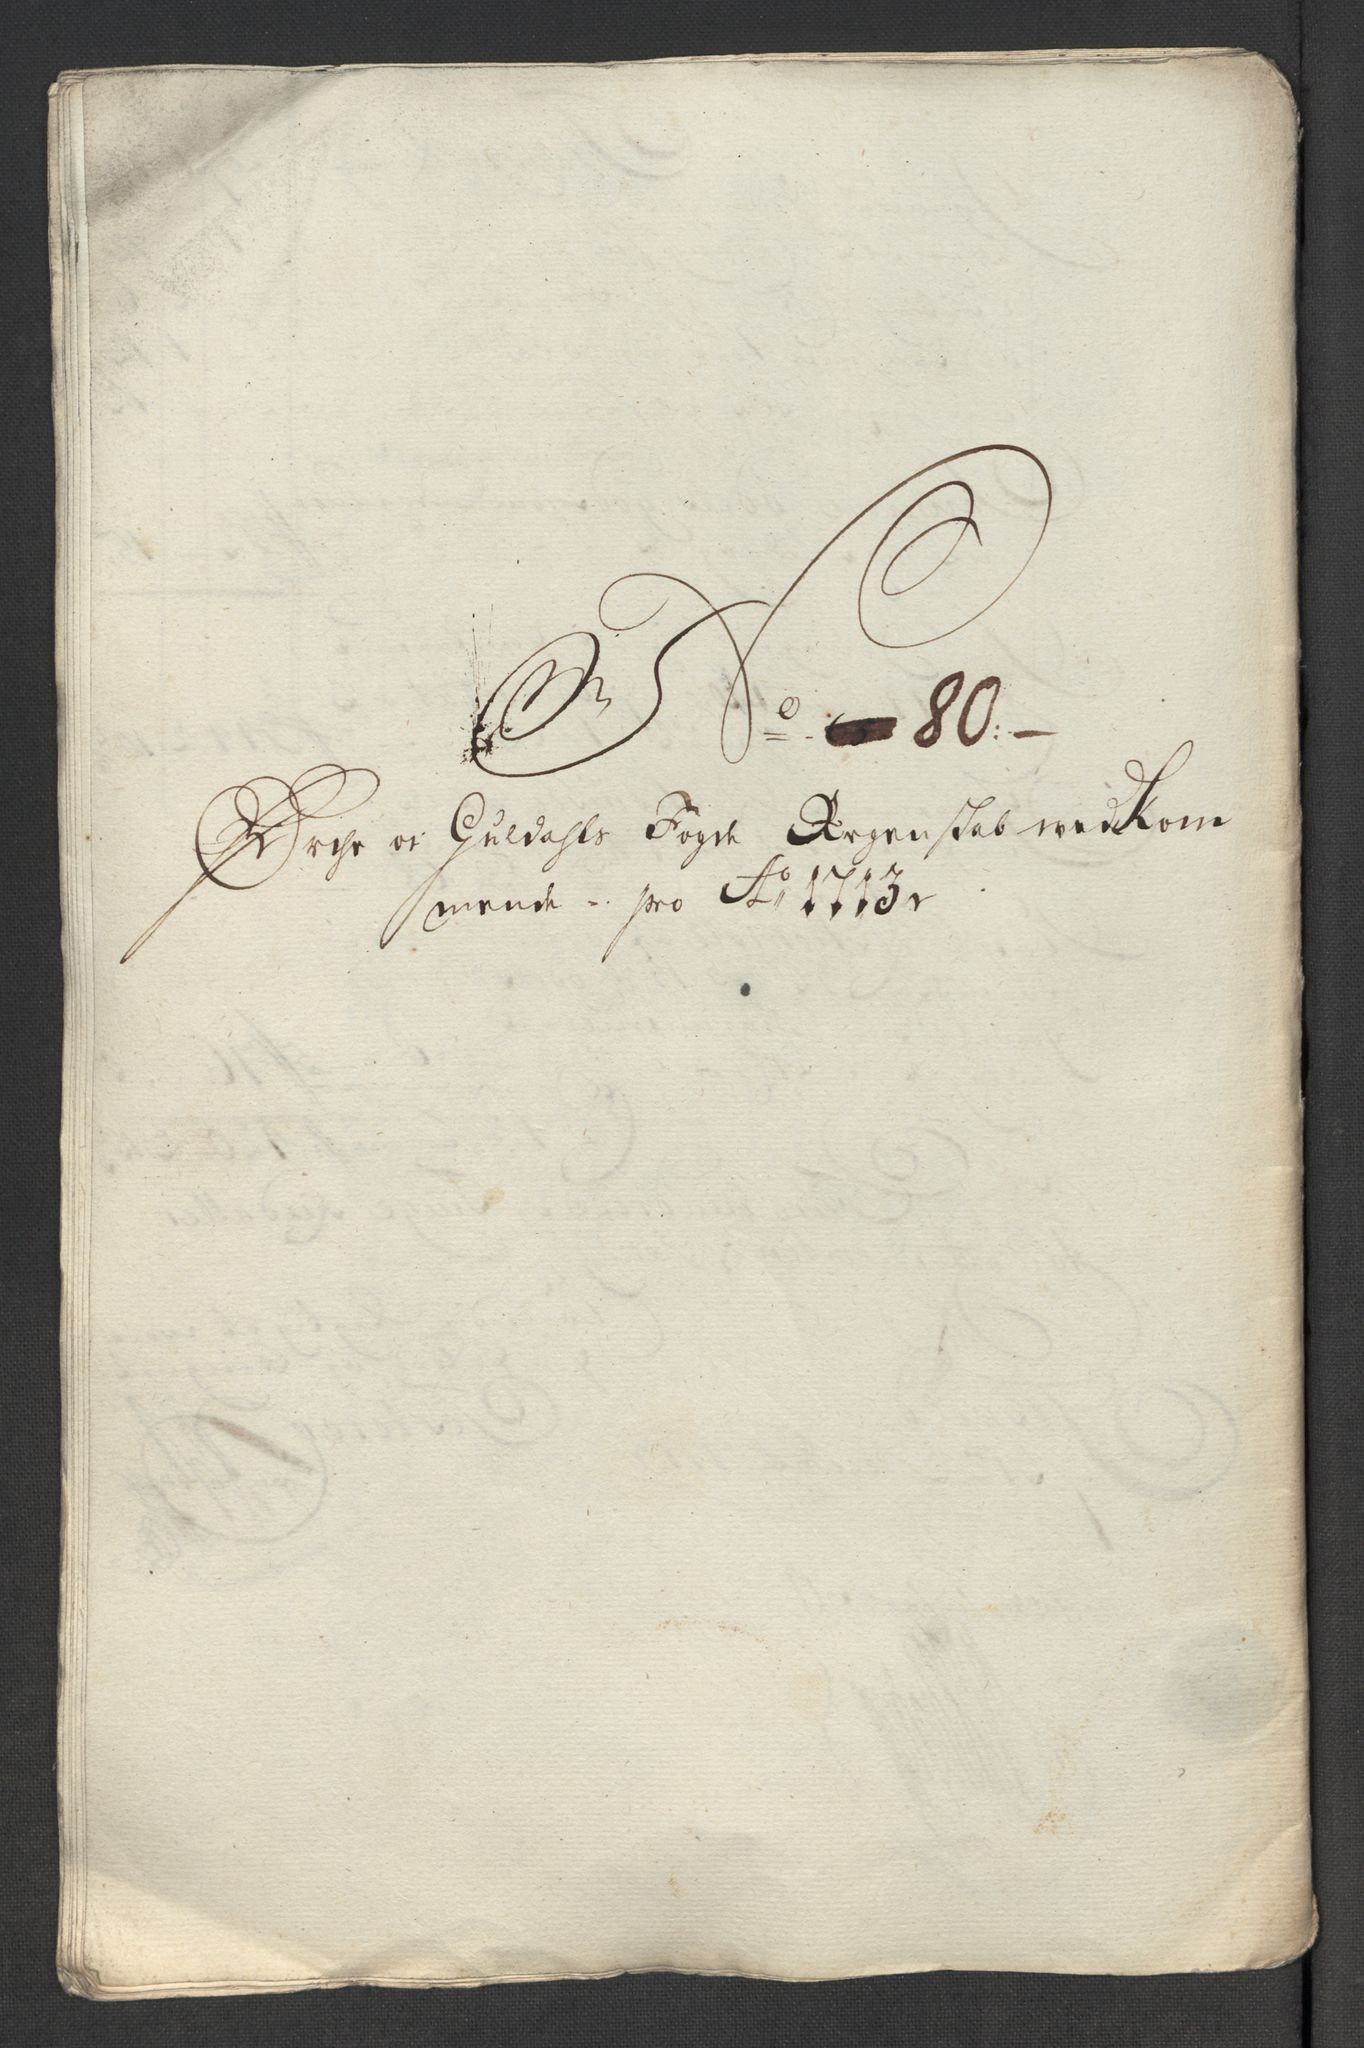 No 80:
Orche oc Guldahls Fogde Regenskab wedkom
mende -. pro Ao 1713